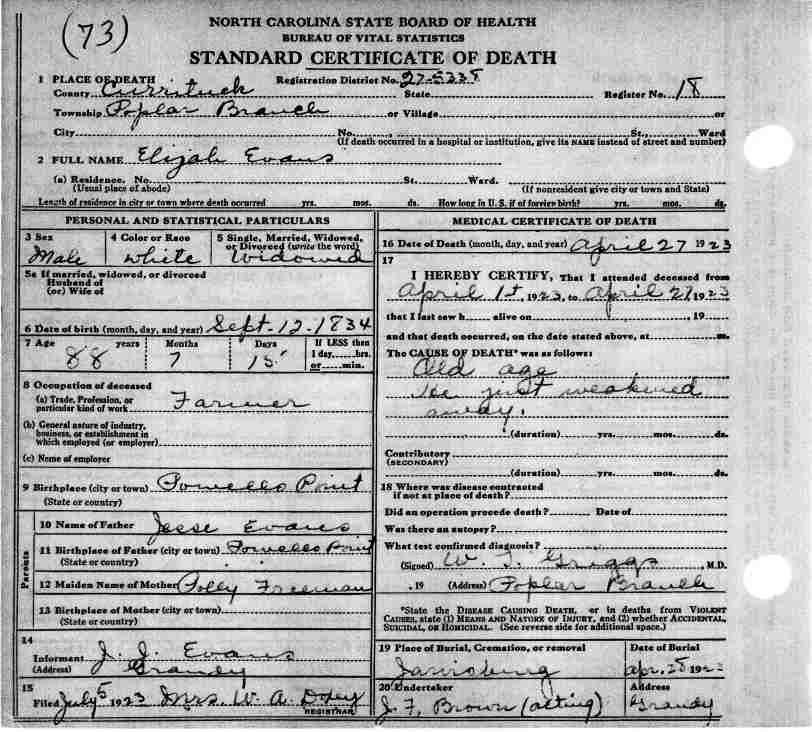 (73)
NORTH CAROLINA STATE BOARD OF HEALTH
BUREAU OF VITAL STATISTICS
STANDARD CERTIFICATE OF DEATH
1 PLACE OF DEATH Registration District No. 27-5338
County Currituck State Register No. 18
Township Poplar Branch or Village or
City No. St., Ward
(If death occurred in a hospital or institution, give its NAME instead of street and number)
2 FULL NAME Elijah Evans
(a) Residence. No. St. Ward.
(Usual place of abode) (If nonresident give city or town and State)
Length of residence in city or town where death occurred yrs. mos. ds. How long in U.S. if of foreign birth? yrs. mos. ds.
PERSONAL AND STATISTICAL PARTICULARS
3 Sex 4 Color or Race 5 Single, Married, Widowed,
or Divorced (write the word)
Male White Widowed
5a If married, widowed, or divorced
Husband of
(or) Wife of
6 Date of birth (month, day, and year) Sept. 12. 1834
7 Age years Months Days If LESS than
88 7 15 1 day,.....hrs.
or.....min.
8 Occupation of deceased
(a) Trade, Profession, or
particular kind of work Farmer
(b) General nature of industry,
business, or establishment in
which employed (or employer)
(c) Name of employer
9 Birthplace (city or town) Powells Point
(State or country)
Parents
10 Name of Father Jesse Evans
11 Birthplace of Father (city or town) Powells Point
(State or country)
12 Maiden Name of Mother Polly Freeman
13 Birthplace of Mother (city or town)
(State or country)
14
Informant J. J. Evans
(Address) Grandy
15
Filed July 5 1923 Mrs. W. A. Doxey
REGISTRAR
MEDICAL CERTIFICATE OF DEATH
16 Date of Death (month, day, and year) April 27 1923
17
I HEREBY CERTIFY, That I attended deceased from
April 1st, 1923, to April 27, 1923
that I last saw h alive on , 19
and that death occurred, on the date stated above, at m.
The CAUSE OF DEATH* was as follows:
Old age
He just weakened
away.
(duration) yrs. mos. ds.
Contributory
(SECONDARY)
(duration) yrs. mos. ds.
18 Where was disease contracted
if not at place of death?
Did an operation precede death? Date of
Was there an autopsy?
What test confirmed diagnosis?
(Signed) W. T. Griggs, M.D.
, 19 (Address) Poplar Branch
*State the DISEASE CAUSING DEATH, or in deaths from VIOLENT
CAUSES, state (1) MEANS AND NATURE OF INJURY, and (2) whether ACCIDENTAL,
SUICIDAL, OR HOMICIDAL. (See reverse side for additional space.)
19 Place of Burial, Cremation, or removal Date of Burial
Jarvisburg Apr. 28 1923
20 Undertaker Address
J. F. Brown (acting) Grandy